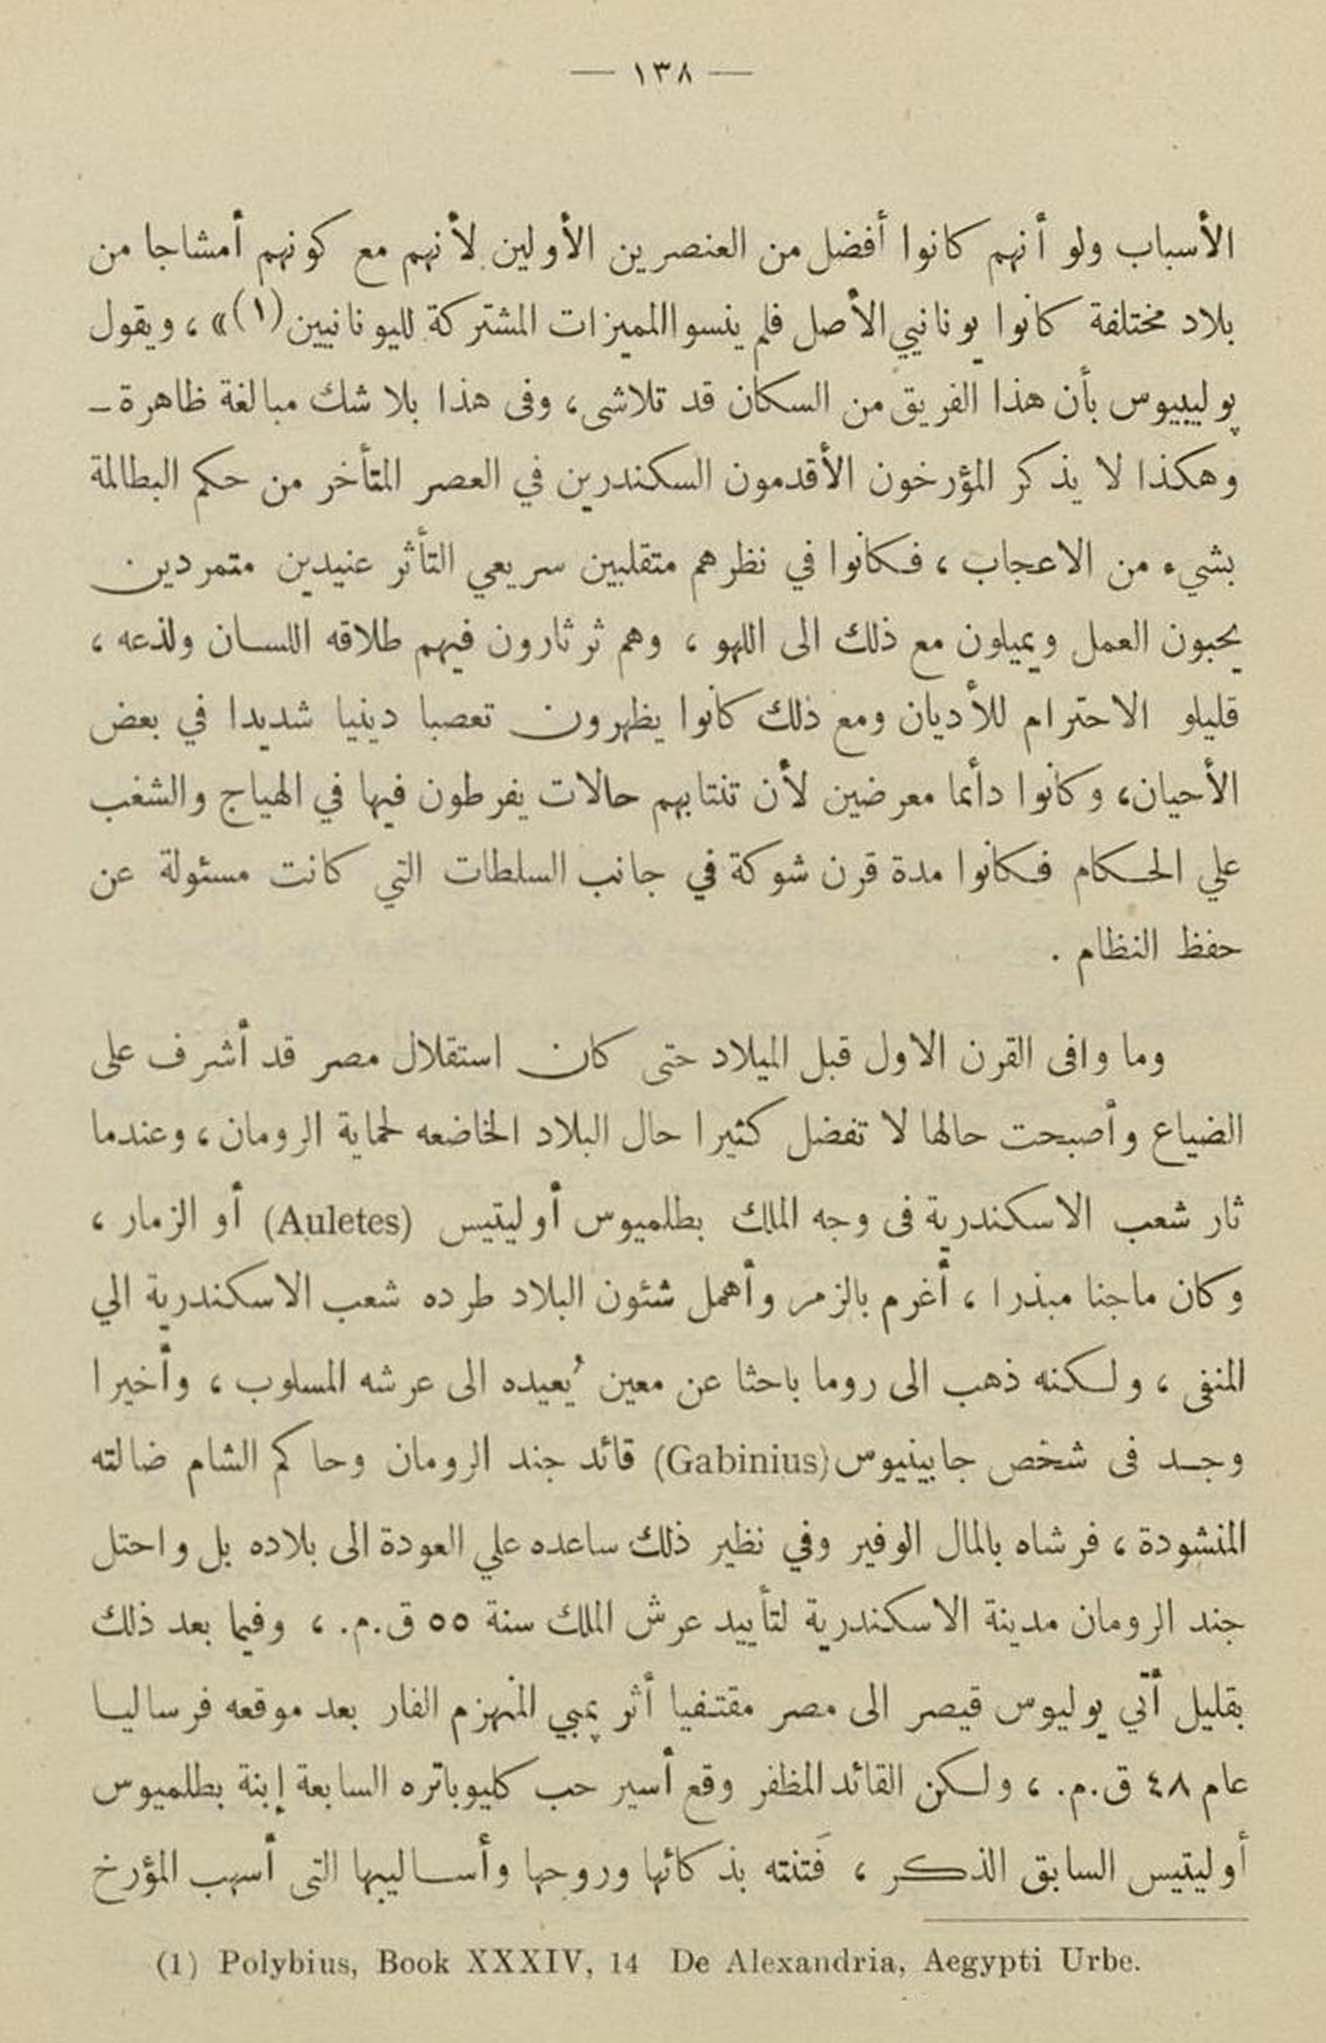 — ١٣٨ —
الأسباب ولو أنهم كانوا أفضل من العنصرين الأولين لأنهم مع كونهم أمشاجا من
بلاد مختلفة كانوا يونانيي الأصل فلم ينسوا المميزات المشتركة لليونانيين (١)» ، ويقول
پوليبيوس بأن هذا الفريق من السكان قد تلاشى ، وفى هذا بلا شك مبالغة ظاهرة ــ
وهكذا لا يذكر المؤرخون الأقدمون السكندرين في العصر المتأخر من حكم البطالمة
بشيء من الاعجاب ، فكانوا في نظرهم متقلبين سريعي التأثر عنيدين متمردين
يحبون العمل ويميلون مع ذلك الى اللهو ، وهم ثرثارون فيهم طلاقه اللسان ولذعه ،
قليلو الاحترام للأديان ومع ذلك كانوا يظهرون تعصبا دينيا شديدا في بعض
الأحيان ، وكانوا دأئما معرضين لأن تنتابهم حالات يفرطون فيها في الهياج والشغب
علي الحكام فكانوا مدة قرن شوكة في جانب السلطات التي كانت مسئولة عن
حفظ النظام .
وما وافى القرن الاول قبل الميلاد حتى كان استقلال مصر قد أشرف على
الضياع وأصبحت حالها لا تفضل كثيرا حال البلاد الخاضعه لحماية الرومان ، وعندما
ثار شعب الاسكندرية فى وجه الملك بطلميوس أوليتيس (Auletes) أو الزمار ،
وكان ماجنا مبذرا ، أغرم بالزمر وأهمل شئون البلاد طرده شعب الاسكندرية الي
المنفى ، ولكنه ذهب الى روما باحثا عن معين يُعيده الى عرشه المسلوب ، وأخيرا
وجد فى شخص جابينيوس (Gabinius) قائد جند الرومان وحاكم الشام ضالته
المنشودة ، فرشاه بالمال الوفير وفي نظير ذلك ساعده علي العودة الى بلاده بل واحتل
جند الرومان مدينة الاسكندرية لتأييد عرش الملك سنة ٥٥ ق.م. ، وفيما بعد ذلك
بقليل أتي يوليوس قيصر الى مصر مقتفيا أثر پمبي المنهزم الفار بعد موقعه فرساليا
عام ٤٨ ق.م. ، ولكن القائد المظفر وقع أسير حب كليوباتره السابعة إبنة بطلميوس
أوليتيس السابق الذكر ، فَتنته بذكائها وروحها وأساليبها التى أسهب المؤرخ
(1) Polybius, Book XXXIV, 14 De Alexandria, Aegypti Urbe.